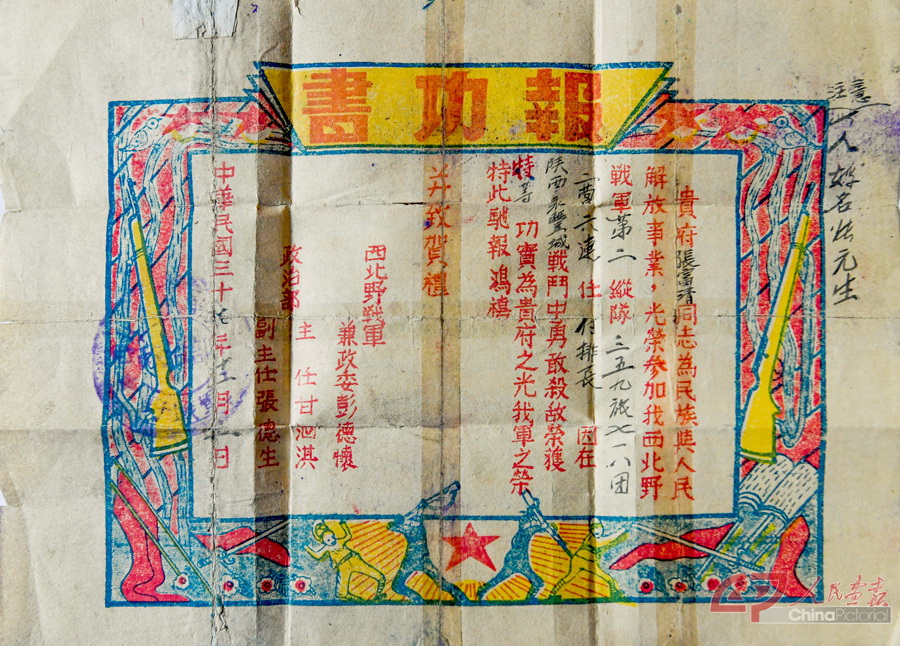 報功書
貴府張富清同志為民族與人民
解放事業，光榮參加我西北野
戰軍第二縱隊三五九旅七一八团
二营六連 任 付排長 因在
陕西永豐城戰鬥中勇敢殺敵榮獲
特等 功實為貴府之光我軍之榮
特此馳報 鴻禧
并致賀禮
西北野戰軍
兼政委彭德懷
政治部 主任甘泗淇
副主任張德生
中華民國三十七年十二月 日
注意
人姓名
元生
人民画报
ChinaPictorial